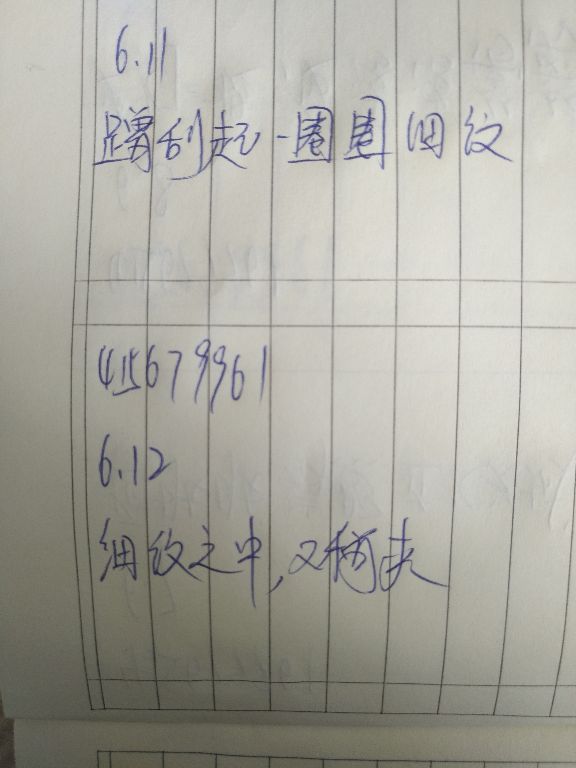 6.11
蹭刮起一圈圈细纹
415679961
6.12
细纹之中,又稍夹